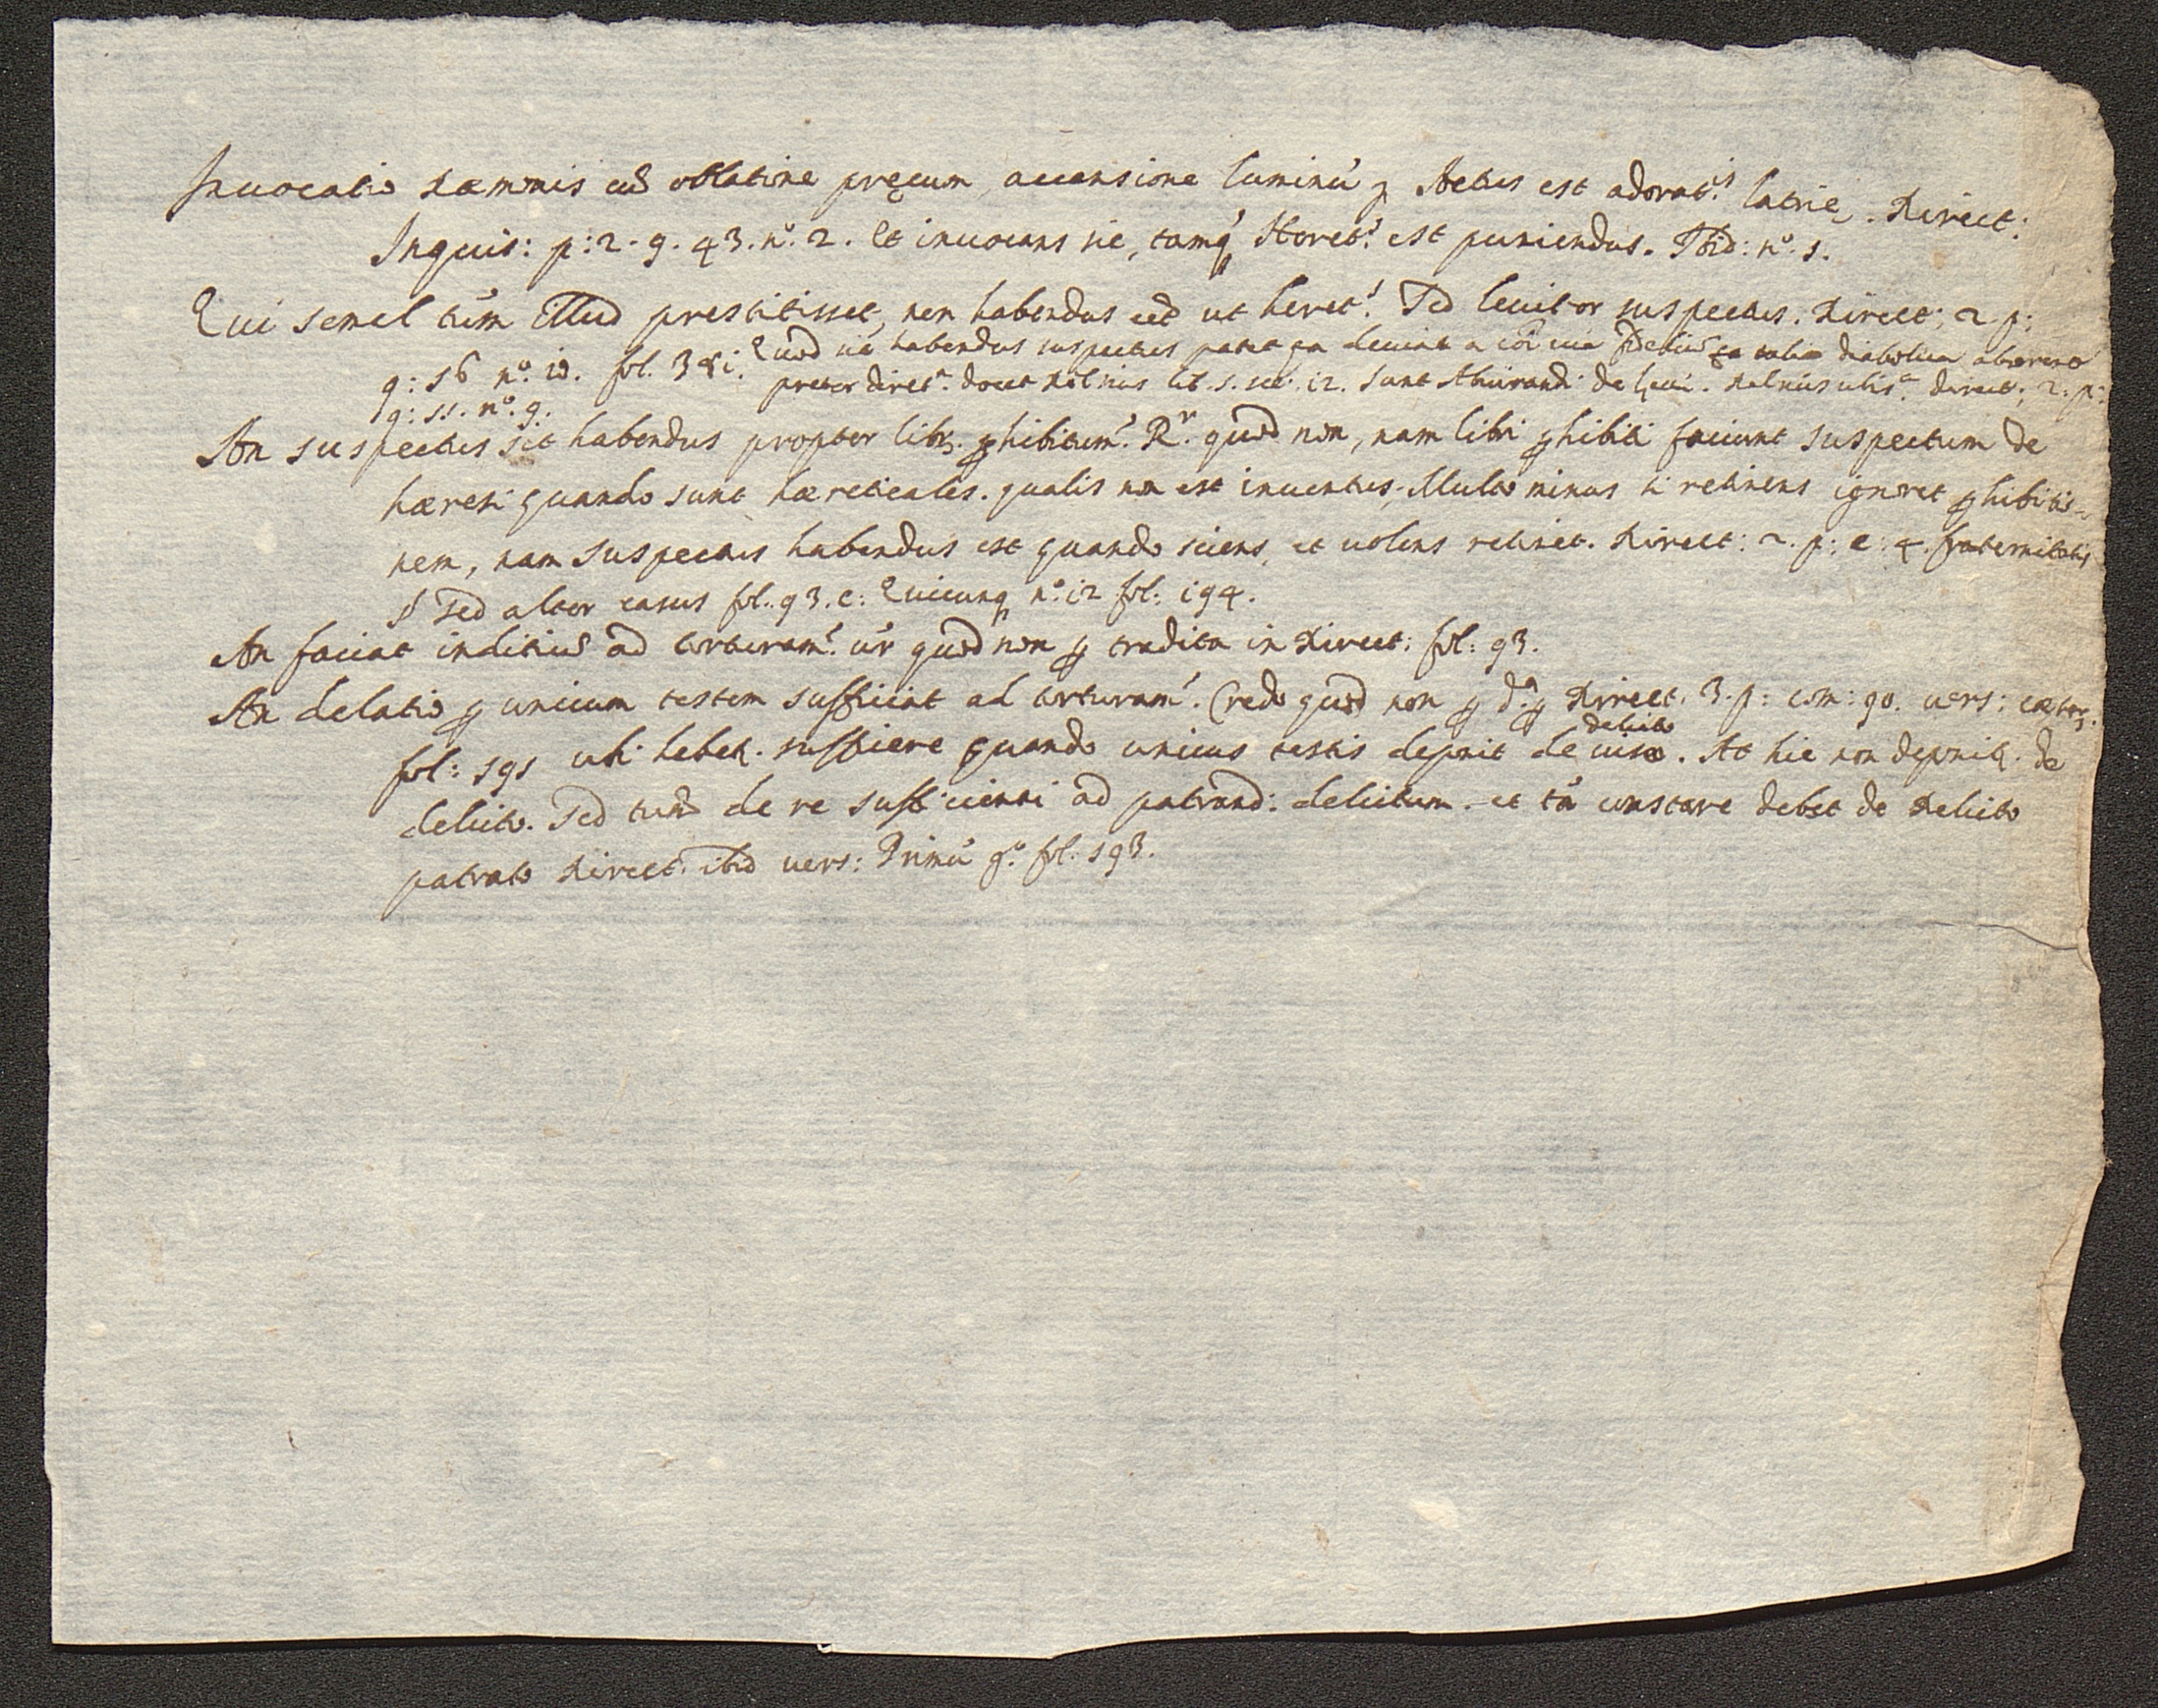 Inuocatio Dæmonis cũ oblatione pręcum, accensione luminũ Actus est adorat.s latrię. Direct:
Inquis: p: 2. q. 43. n.o 2. Et inuocans sic, tamq̃ Heret.s est puniendus. Ibid: n.o 1.
Qui semel tũm illud prestitisset, non habendus est ut heret.s Sed leuiter suspectus. Direct: 2. p:
q: 56 n.o 10. fol. 341. Quod sit habendus suspectus patet qa deuiat a cõi uia fideliũ
preter direct.m docet lib. 1. sec. 12. sunt Abiurandi de leui. direct: 2. p:
q: 55. n.o 9.
An suspectus sit habendus propter libr. ꝓhibitum? R.r quod non, nam libri ꝓhibiti faciunt suspectum de
hæresi quando sunt hæreticales. qualis non est inuentus, Multo minus si retinens ignoret ꝓhibitio-
nem, nam suspectus habendus est quando sciens, et uolens retinet. Direct: 2. p: c: 4. fraternitatis
§ Sed alter casus fol. 93. c: Quicunq n.o 12 fol: 194.
An faciat inditiũ ad torturam? ur̃ quod non ꝑ tradita in Direct: fol: 93.
An delatio ꝑ unicum testem sufficiat ad torturam? Credo quod non ꝑ d.a ꝑ Direct. 3. p: com: 90. uers:
delicto
fol: 591 ubi habet. sufficere quando unicus testis deponit de uiso. At hic non deponit. de
delicto. Sed tũm de re sufficienti ad patrand: delictum. et tñ constare debet de Delicto
patrato Direct. ibid uers: Primũ g.o fol: 593.